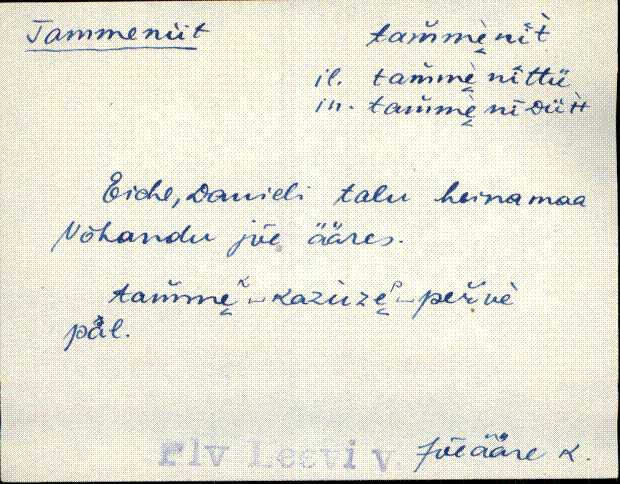 Tammeniit tam̆mè̬ nīt̀
il. tam̆mè̬ nīttü
in. tam̆mè̬ nīDüH
Eiche, Danieli talu heinamaa
Võhandu jõe ääres.
tam̆me̬ᴋ – kazüze̬ᴾ – per̆vè
päl.
rlv Leevi v. Jõeääre K.